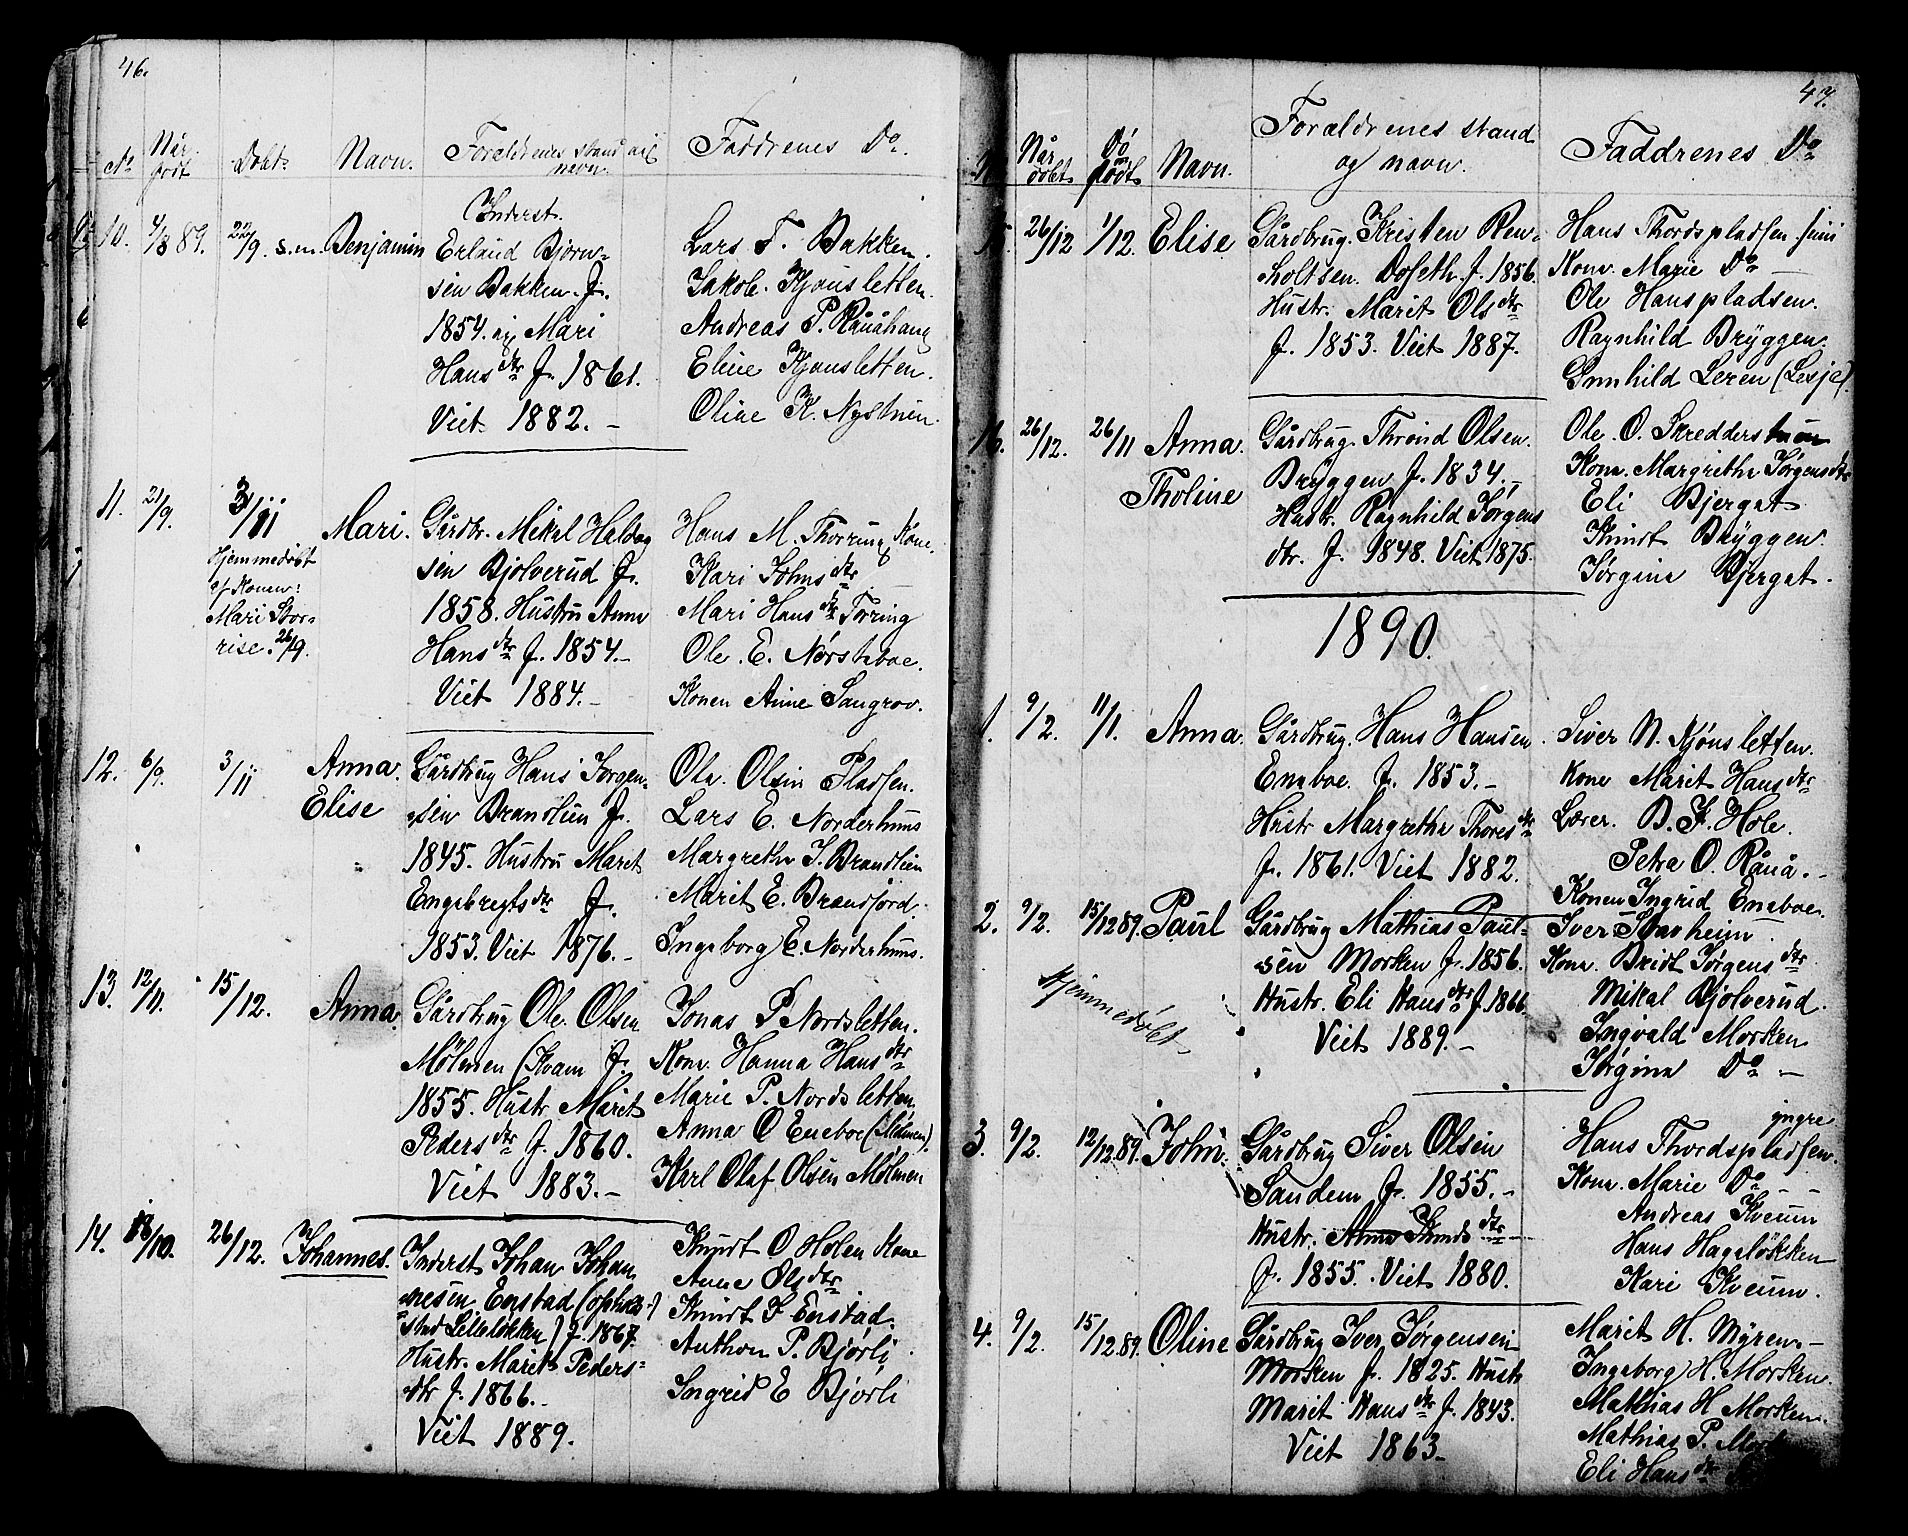 46.
No Når født Døbt Navn. Forældrenes stand og navn. Faddrenes Do.
10. 4/8 89. 22/9 s.m. Benjamin
Inderst.
Erland Bjørn-
sen Bakken. f.
1854. og Mari
Hansdtr f. 1861.
Viet 1882. –
Lars T. Bakken.
Jakob. Kjønsletten.
Andreas P. Rauåhaug
Eline Kjønsletten.
Oline K. Nystuen.
11. 21/9. 3/11 Mari.
Hjemmedøbt
af Konen:
Mari Stor-
rise. 26/9.
Gårdbr. Mikal Haldog
sen Bjølverud f.
1858. Hustru Anne
Hansdtr f. 1854.–
Viet 1884.–
Hans M. Thorring Kone.
Kari Johnsdtr
Mari Hansdtr Torring
Ole. E. Nørsteboe.
Konen Anne Sangrov.
12. 6/9. 3/11 Anna.
Elise
Gårdbrug Hans Jørgen-
sen Brandlien f.
1845. Hustru Marit
Engebregtsdtr f.
1853. Viet 1876.–
Ole. Olsen Pladsen.
Lars E. Norderhuus
Margrethe J. Brandlien
Marit E. Brandfjord.
Ingeborg E. Norderhuus.
13. 12/11. 15/12. Anna.
Gårdbrug Ole. Olsen
Mølmen (Kvam f.
1855. Hustr. Marit
Pedersdtr f. 1860.
Viet 1883.–
Jonas P Nordsletten.
Kone. Hanna Hansdtr
Marie P. Nordsletten.
Anna O Eneboe (Mølmen).
Karl Olaf Olsen Mølmen
14. 18/10. 26/12. Johannes.
Inderst Johan Johan
nesen Enstad (ophold-
sted Lilleløkken) f. 1867.
Hustr. Marit Peders-
dtr f. 1866.–
Viet 1889.
Knudt O Holen Kone
Anne Olsdtr
Knudt J Enstad.
Anthon P. Bjørli.
Ingrid E Bjørli
47.
Når døbt Do født Navn. Forældrenes stand og navn. Faddrenes Do
15. 26/12 1/12. Elise
Gårdbrug. Kristen Ren-
holtsen. Doseth. f. 1856.
Hustr. Marit Olsdtr
f. 1853. Viet 1887.
Hans Thordspladsen
Kone. Marie Do –
Ole Hanspladsen.
Ragnhild Bryggen.
Gunhild Leren (Lesje)
16. 26/12. 26/11 Anna.
Tholine
Gårdbrug. Thrond Olsen.
Bryggen f. 1834.–
Hustr. Ragnhild Jørgens
dtr. f. 1848. Viet 1875.
Ole. O. Skredderstuen
Kone. Margrethe Jørgensdtr
Eli Bjergat
Knudt Bryggen.
Jørgine Bjergat.
1890.
1. 9/2. 11/1. Anna.
Gårdbrug. Hans Hansen
Eneboe. f. 1853.–
Hustr Margrethe Thoresdtr
f. 1861. Viet 1882.
Siver N. Kjønsletten.
Kone Marit Hansdtr
Lærer. B. J. Hole.
Petra O. Råuå.–
Konen Ingrid Eneboe.
2. 9/2. 15/12 89. Paul
Hjemmedøbt–
Gårdbrug Mathias Paul-
sen Morken f. 1856.
Hustr. Eli Hansdtr f. 1866
Viet 1889.–
Iver Stavheim.
Kone. Bridt Jørgensdtr
Mikal Bjølverud.
Ingvald Morken
Jørgine Do –
3. 9/2. 12/12 89. John.
Gårdbrug Siver Olsen
Sandem f. 1855.–
Hustr. Anne Knudsdtr
f. 1855. Viet 1880.
yngre
Hans Thordspladsen.
Kone. Marie Do –
Andreas Kveum
Hans Hageløkken
Kari Kveum.
4. 9/2. 15/12 89. Oline
Gårdbrug Iver Jørgensen
Morken f. 1825. Hustr
Marit Hansdtr f. 1843.
Viet 1863.–
Marit H. Myren.–
Ingeborg H. Morken.
Mathias H Morken.
Mathias P. Mork
Eli Hansdtr